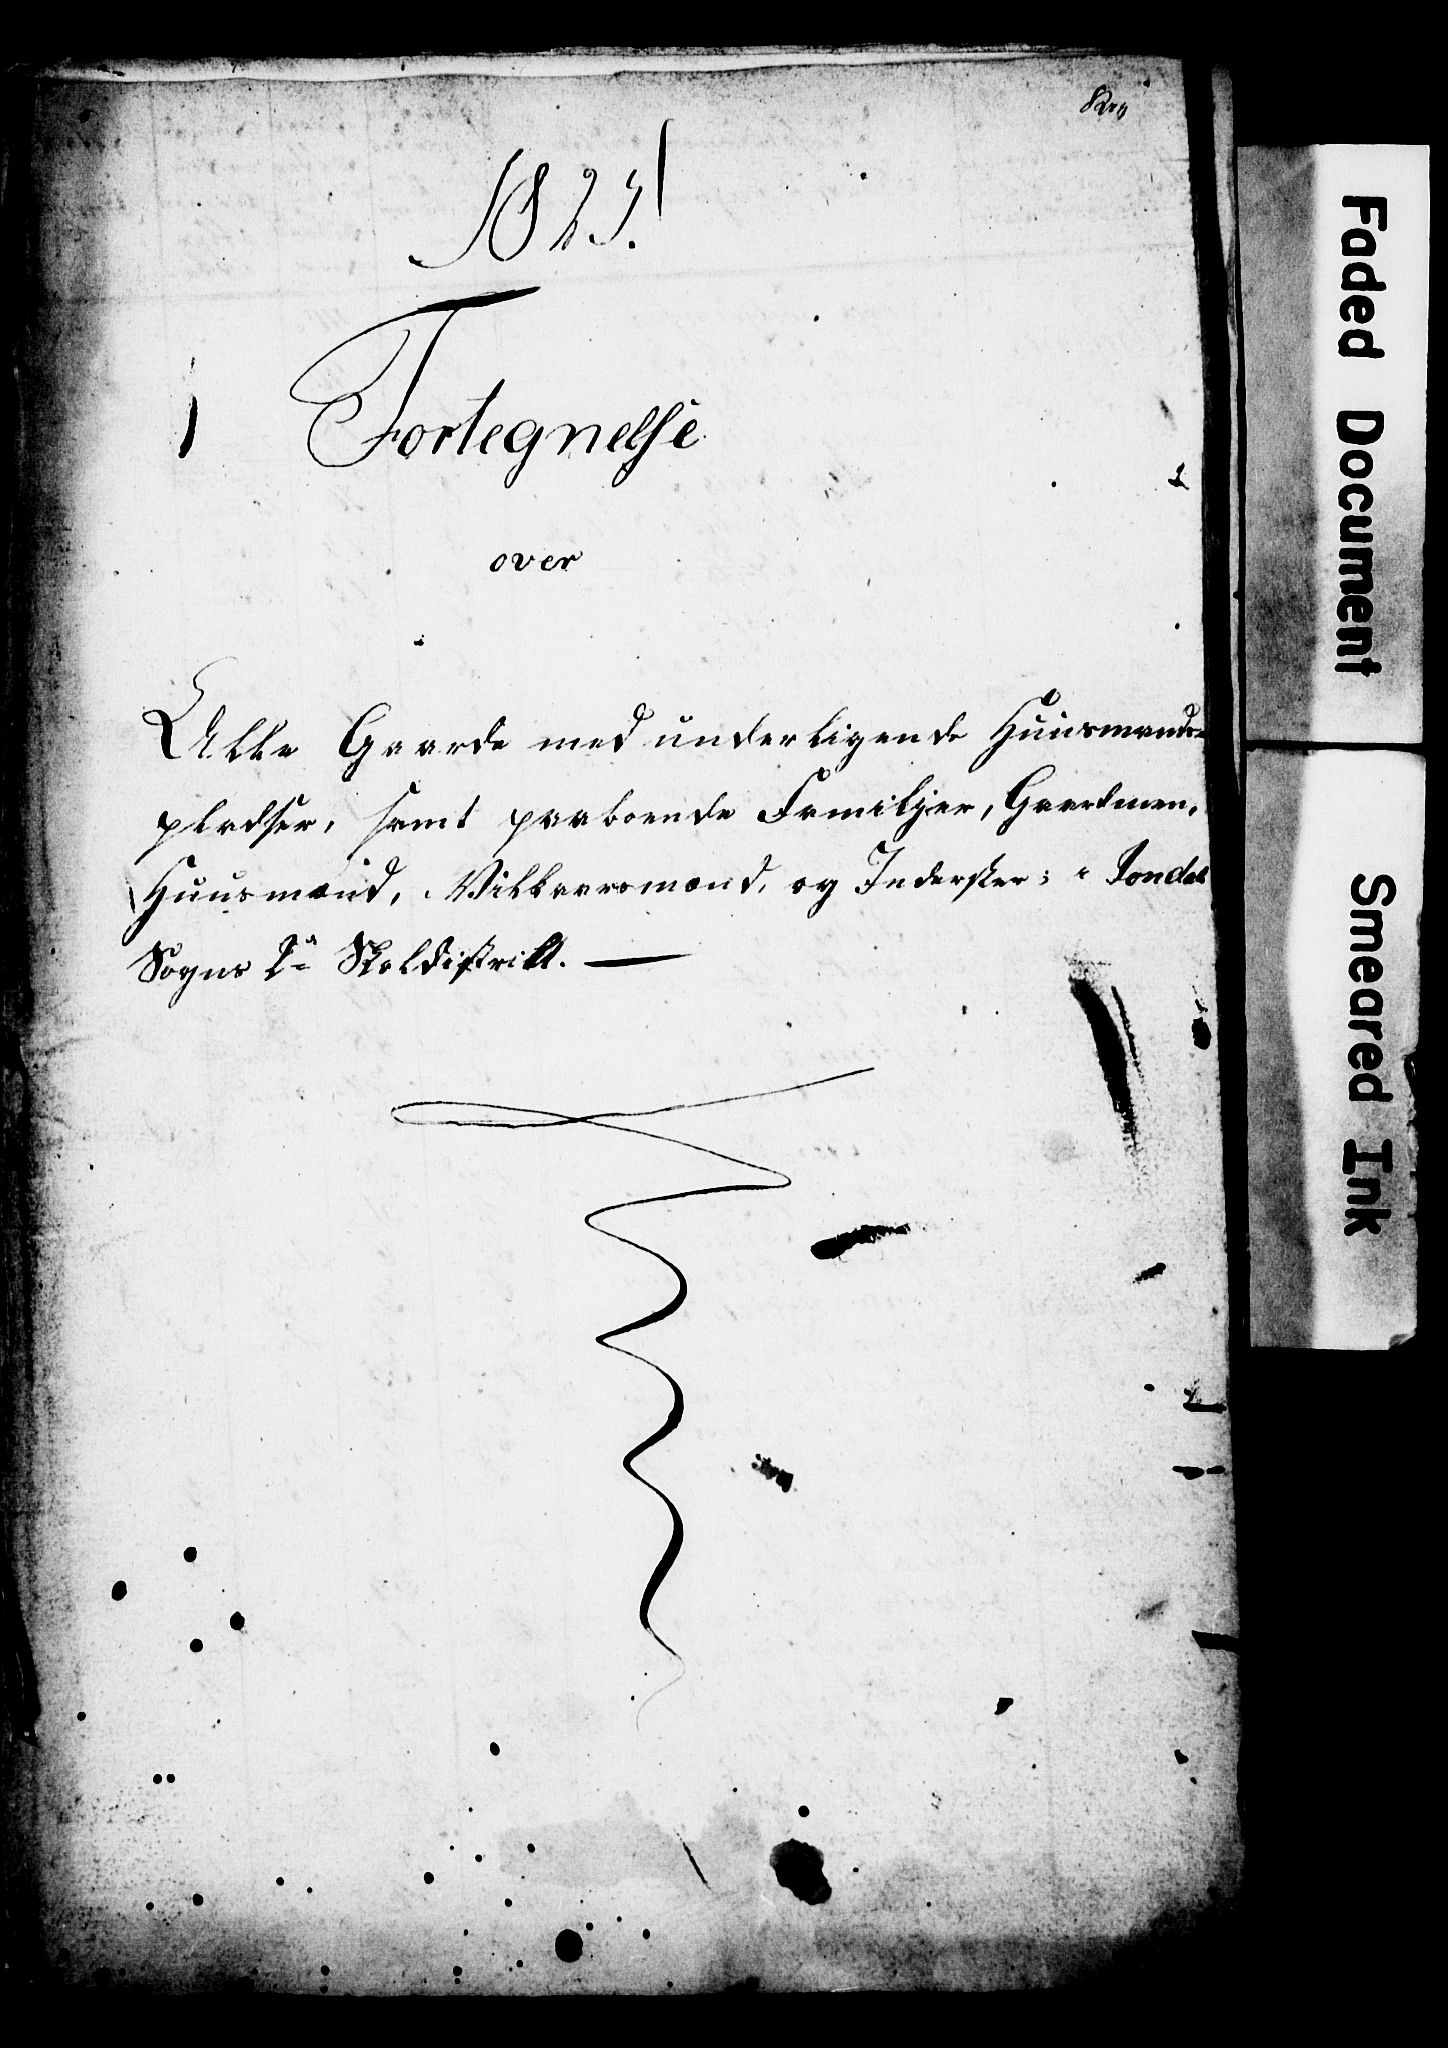 1825.
Fortegnelse
over
Alle Gaarde med underligende Huusmands-
pladser, samt paaboende Familjer, Gaardmen,
Huusmænd, Vilkaarsmænd, og Inderster; i Jondal
Sogns Skoldistrikt. —
Faded Document
Smeared Ink